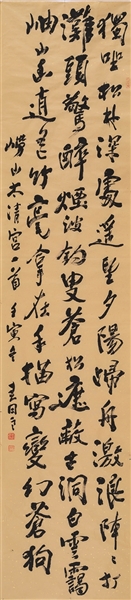 獨坐松林深處遙望夕陽歸舟激浪陣陣打
灘頭驚醉煙波釣叟蒼松遮蔽古洞白雲靄
岫山幽竹毫拿在手描寫變幻蒼狗
嶗山太清宮一首壬寅年